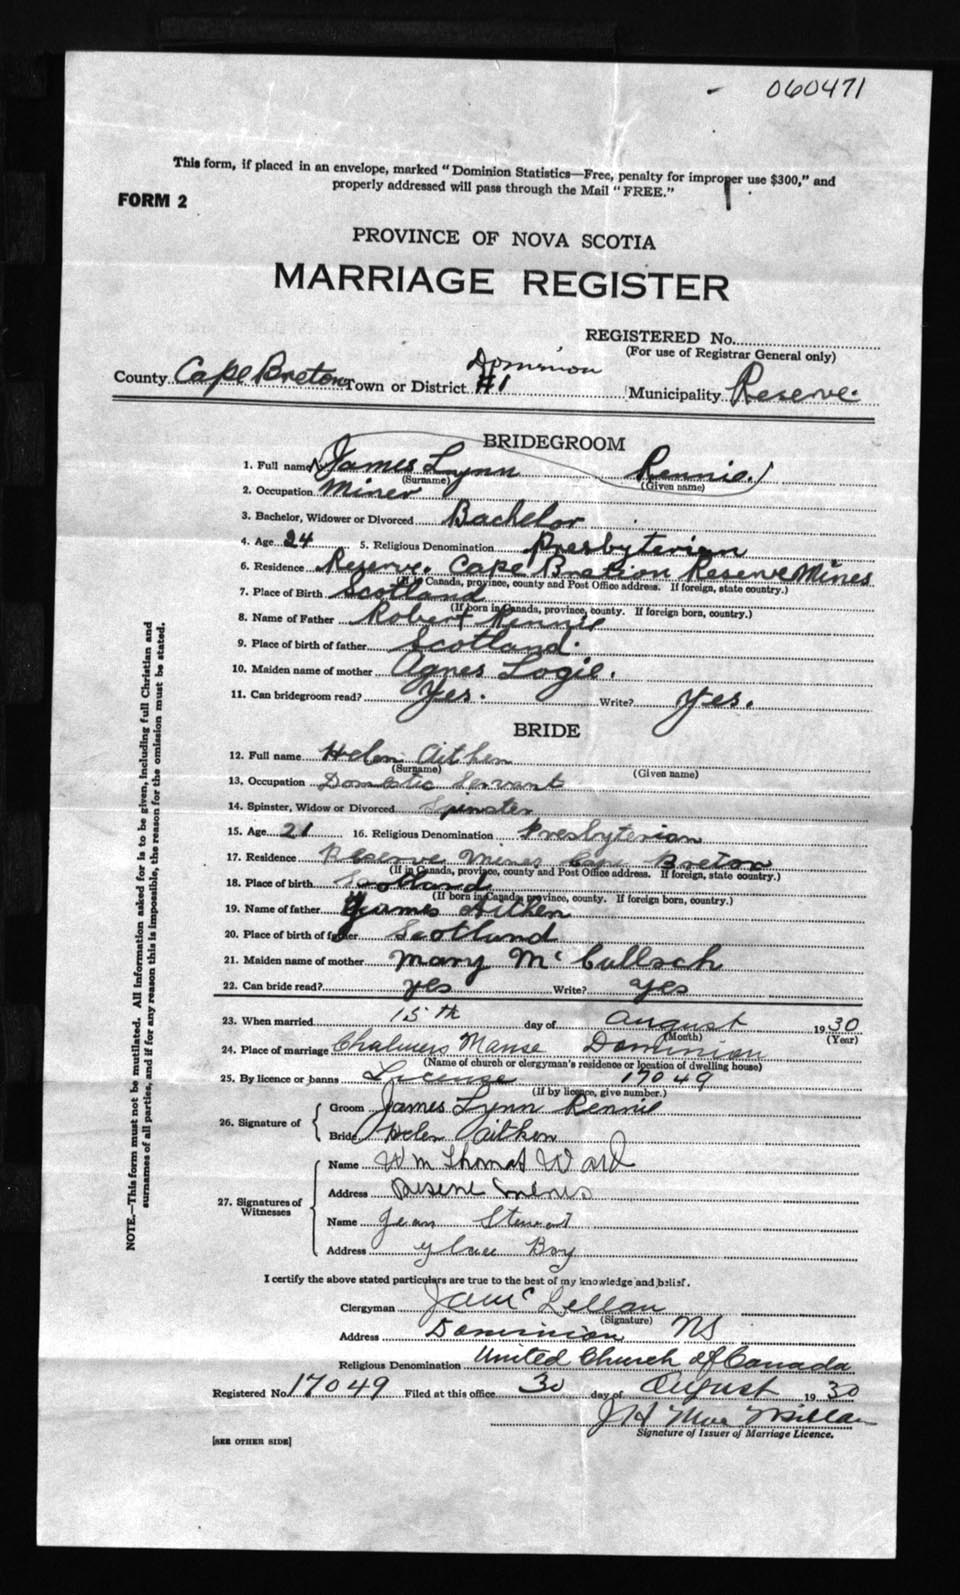 060471
This form, if placed in an envelope, marked "Dominion Statistics—Free, penalty for improper use $300," and
properly addressed will pass through the Mail "FREE."
FORM 2
PROVINCE OF NOVA SCOTIA
MARRIAGE REGISTER
REGISTERED No.
(For use of Registrar General only)
County Cape Breton Town or District Dominion #1 Municipality Reserve.
BRIDEGROOM
1. Full name James Lynn Rennie.
(Surname) (Given name)
2. Occupation Miner
3. Bachelor, Widower or Divorced Bachelor
4. Age 24 5. Religious Denomination Presbyterian
6. Residence Reserve. Cape Breton Reserve Mines
(If in Canada, province, county and Post Office address. If foreign, state country.)
7. Place of Birth Scotland
(If born in Canada, province, county. If foreign born, country.)
8. Name of Father Robert Rennie
9. Place of birth of father Scotland.
10. Maiden name of mother Agnes Logie.
11. Can bridegroom read? Yes. Write? Yes.
BRIDE
12. Full name Helen Aitken
(Surname) (Given name)
13. Occupation Domestic Servant
14. Spinster, Widow or Divorced Spinster
15. Age 21 16. Religious Denomination Presbyterian
17. Residence Reserve Mines Cape Breton
(If in Canada, province, county and Post Office address. If foreign, state country.)
18. Place of birth Scotland
(If born in Canada, province, county. If foreign born, country.)
19. Name of father James Aitken
20. Place of birth of father Scotland
21. Maiden name of mother Mary McCulloch
22. Can bride read? yes Write? yes
23. When married 15th day of August 1930
(Month) (Year)
24. Place of marriage Chalmers Manse Dominion
(Name of church or clergyman's residence or location of dwelling house)
25. By licence or banns Licence 17049
(If by licence, give number.)
26. Signature of
Groom James Lynn Rennie
Bride Helen Aitken
27. Signatures of Witnesses
Name Wm Thomas Ward
Address Reserve Mines
Name Jean Stewart
Address Glace Bay
I certify the above stated particulars are true to the best of my knowledge and belief.
Clergyman McLellan
(Signature)
Address Dominion NS
Religious Denomination United Church of Canada
Registered No. 17049 Filed at this office 30 day of August 1930
J H MacMillan
Signature of Issuer of Marriage Licence.
[SEE OTHER SIDE]
NOTE.—This form must not be mutilated. All information asked for is to be given, including full Christian and
surnames of all parties, and if for any reason this is impossible, the reason for the omission must be stated.